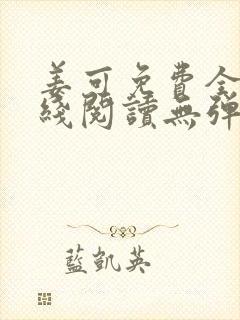 姜可免費全
綫閱讀無彈
藍凱英